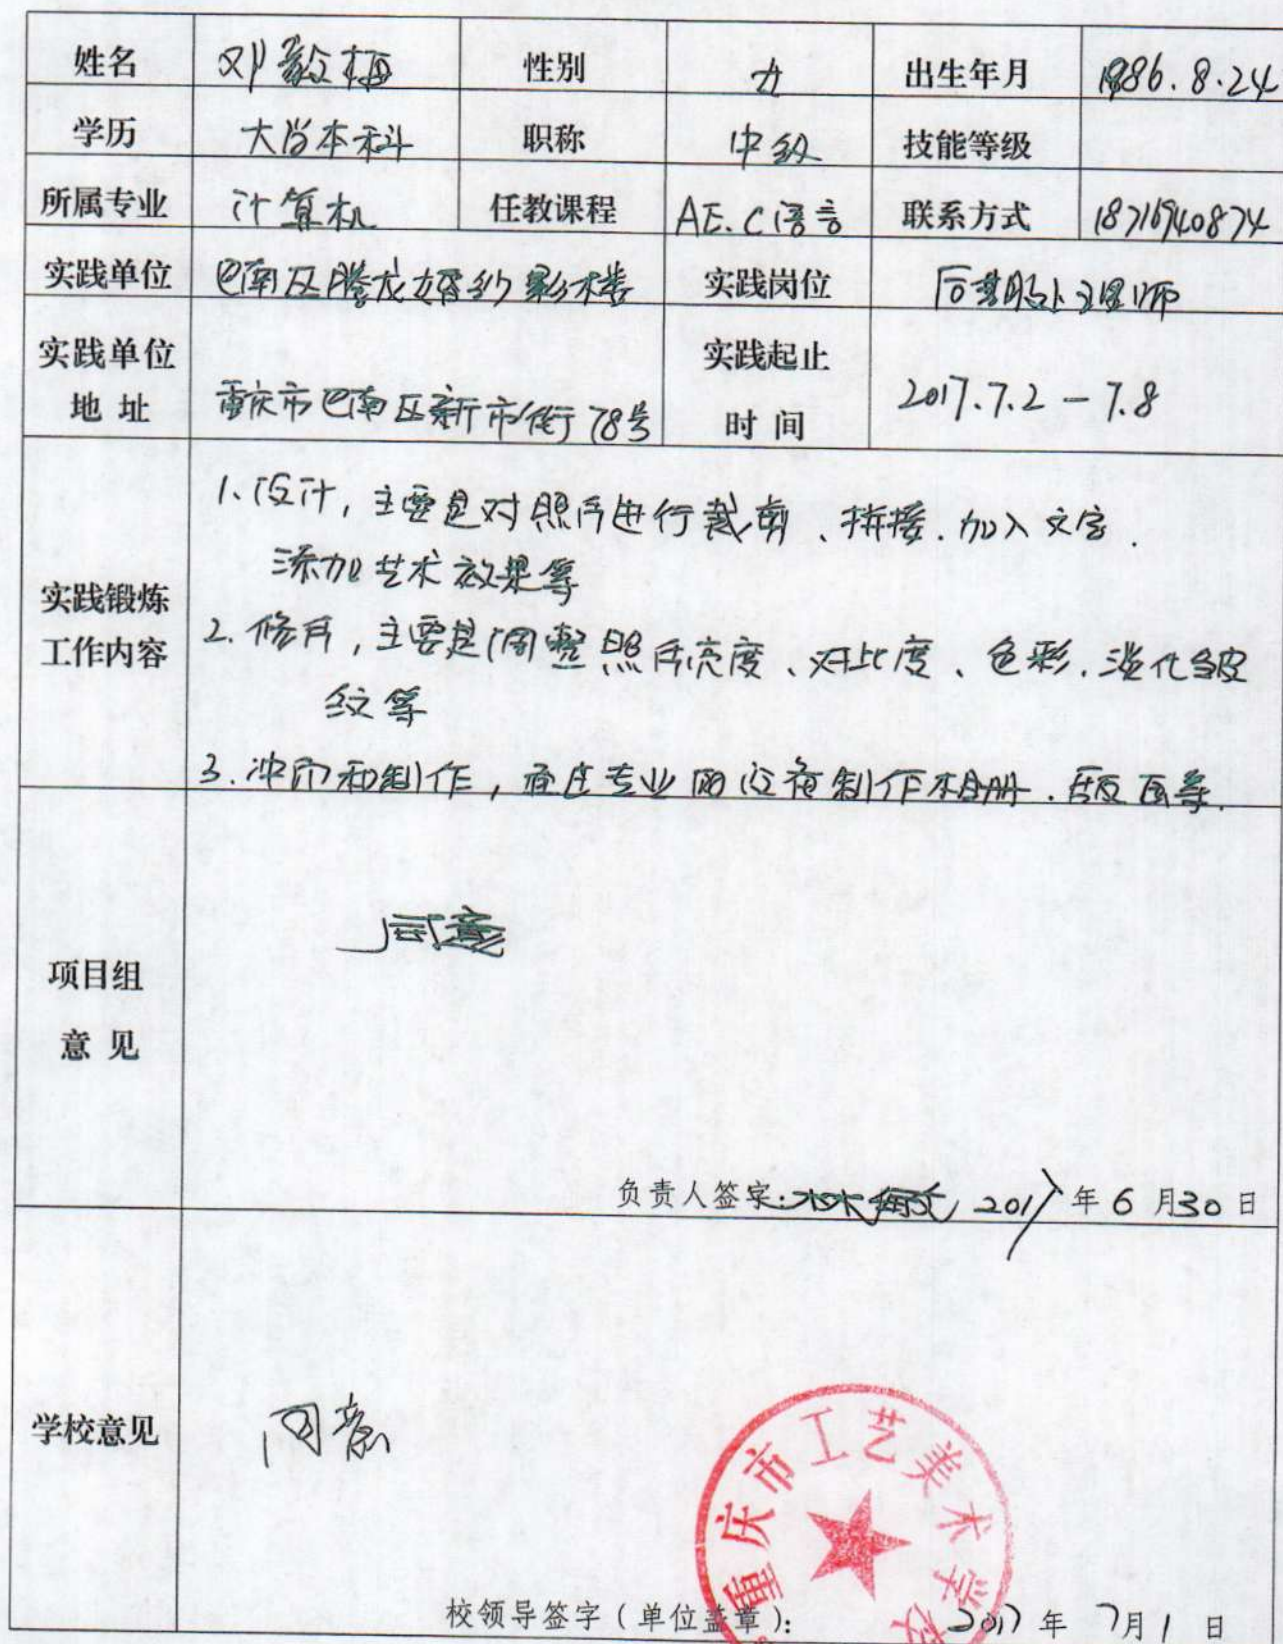 姓名 邓毅梅 性别 女 出生年月 1986.8.24
学历 大学本科 职称 中级 技能等级
所属专业 计算机 任教课程 AE.C语言 联系方式 18716940874
实践单位 巴南区腾龙婚纱影楼 实践岗位 后期处理师
实践单位 实践起止
地 址 重庆市巴南区新市街78号 时 间 2017.7.2 - 7.8
1、设计,主要是对照片进行裁剪、拼接.加入文字.
添加艺术效果等
实践锻炼
工作内容
2. 修片,主要是调整照片亮度、对比度、色彩.淡化皱
纹等
3.冲印和制作,通过专业的设备制作相册.
同意
项目组
意 见
负责人签字: 2017年6月30日
学校意见 同意
重庆市工艺美术学校
校领导签字(单位盖章): 2017年7月1日